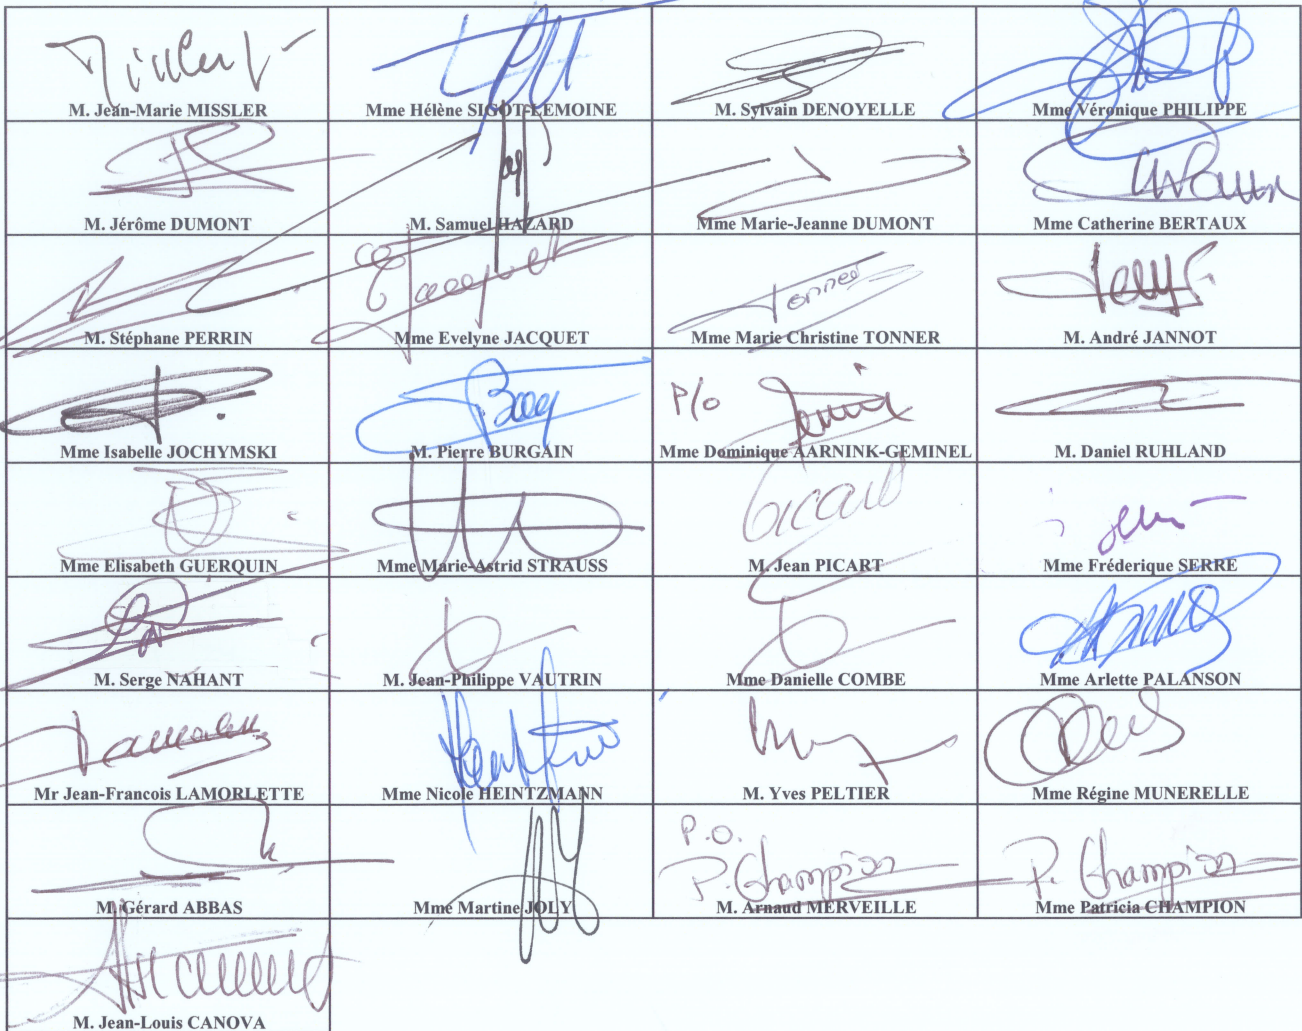 M. Jean-Marie MISSLER
Mme Hélène SIGOT-LEMOINE
M. Sylvain DENOYELLE
Mme Véronique PHILIPPE
M. Jérôme DUMONT
M. Samuel HAZARD
Mme Marie-Jeanne DUMONT
Mme Catherine BERTAUX
M. Stéphane PERRIN
Jacquet
Mme Evelyne JACQUET
Tonner
Mme Marie Christine TONNER
M. André JANNOT
Mme Isabelle JOCHYMSKI
M. Pierre BURGAIN
P/o
Mme Dominique AARNINK-GEMINEL
M. Daniel RUHLAND
Mme Elisabeth GUERQUIN
Mme Marie-Astrid STRAUSS
Picart
M. Jean PICART
Mme Fréderique SERRE
M. Serge NAHANT
M. Jean-Philippe VAUTRIN
Mme Danielle COMBE
Mme Arlette PALANSON
Mr Jean-Francois LAMORLETTE
Mme Nicole HEINTZMANN
M. Yves PELTIER
Mme Régine MUNERELLE
M. Gérard ABBAS
Mme Martine JOLY
P.O.
P. Champion
M. Arnaud MERVEILLE
P. Champion
Mme Patricia CHAMPION
M. Jean-Louis CANOVA